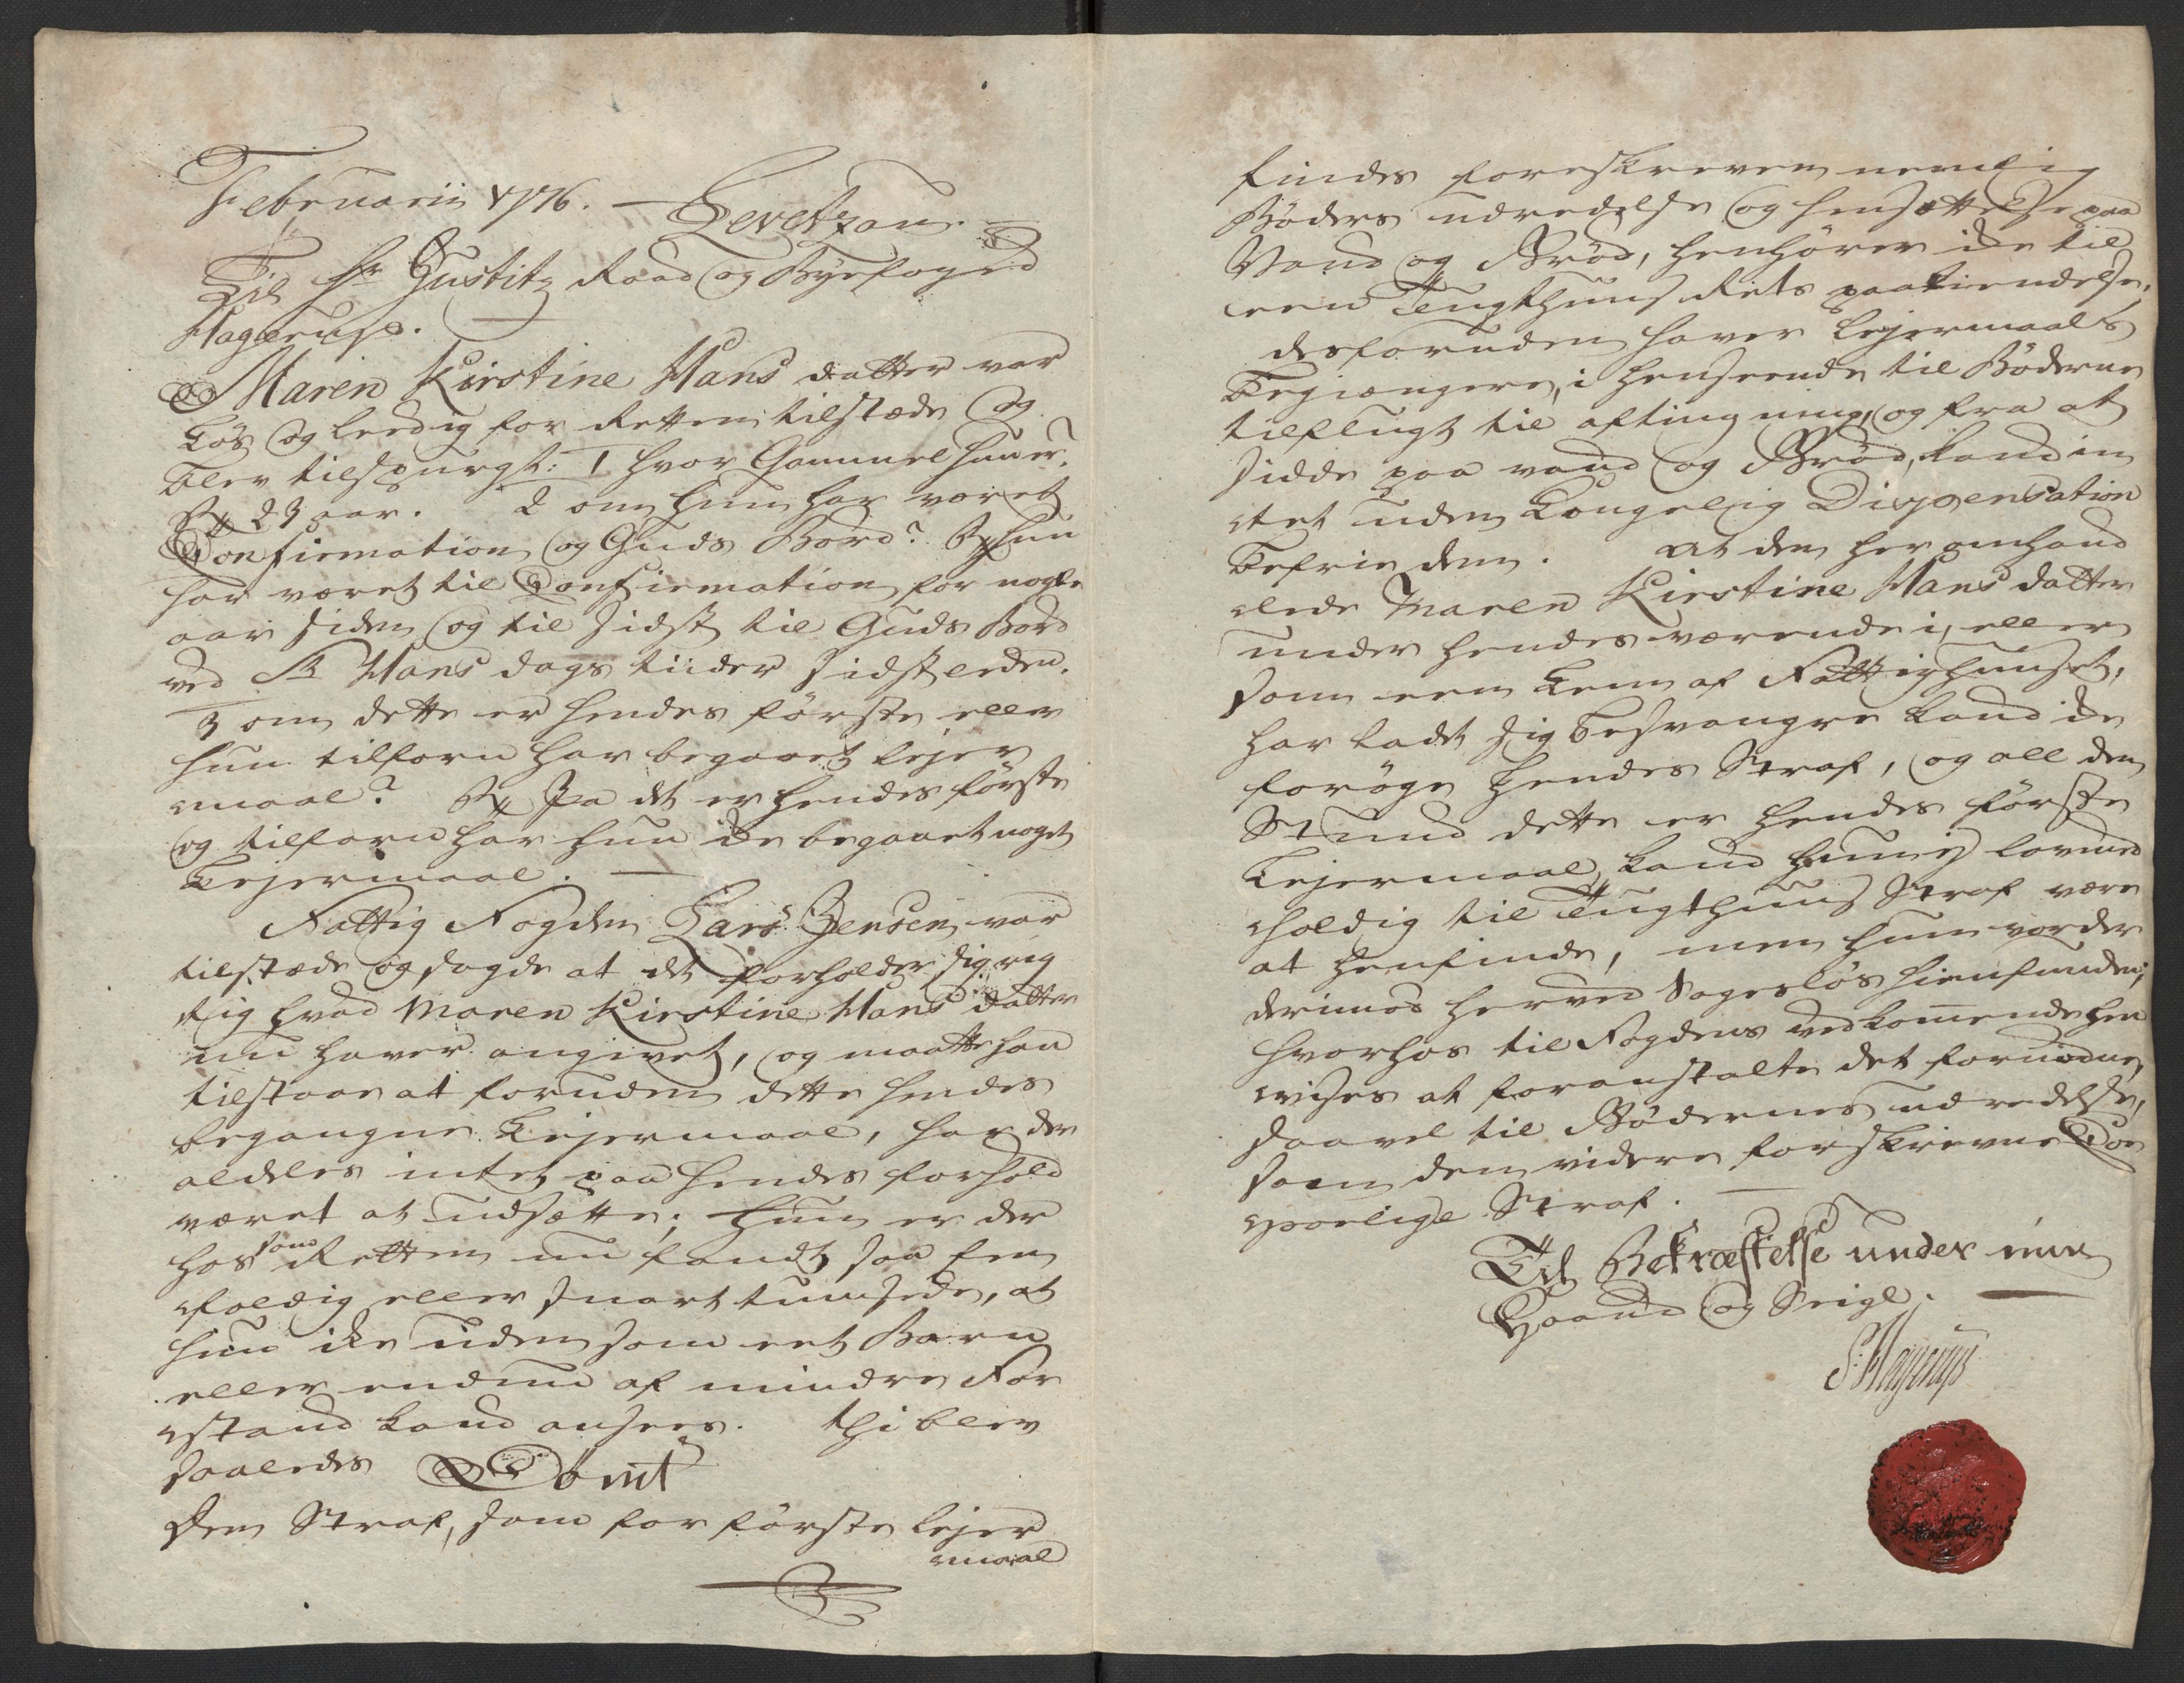 Februarii 1776. — Levetzau.
Til Hr Justitz Raad og Byefoged
Hagerup.
Maren Kirstine Hans datter var
Løs og leedig for Retten tilstæde og
blev tilspurgt: 1 hvor Gammel hun er.
Rx 23 aar. 2 om hun har været
Confirmation og Guds Bord? Rx hun
har været til Confirmation for nogle
aar siden og til sidst til Guds Bord
ved St Hans dags tiider sidstleden.
3 om dette er hendes første eller
hun tilforn har begaaet lejer
maal? Rx Ja det er hendes første
og tilforn har hun icke begaaet noget
Lejermaal. —
Fattig Fogden Lars Jensen var
tilstæde og sagde at det forholder sig rig
tig hvad Maren Kirstine Hans datter
nu haver angivet, og maatte han
tilstaae at foruden dette hendes
begangne Lejermaal, har der
aldeles intet paa hendes forhold
været at udsætte; Hun er der
hos som Retten nu fandt saa een
foldig eller snart tumsede, at
hun icke uden som eet Barn
eller endnu af mindre For
stand kand ansees. thi blev
saaledes Dømt
Den Straf, som for første lejer
maal
findes foreskreven nemlig
Bøders udredelse og hensættelse paa
Vand og Brød, henhører icke til
een Tugthuus Rets paakiendelse,
desforuden haver Lejermaals
Begiængere, i henseende til Bøderne
tilflugt til aftingning, og fra at
sidde paa vand og Brød, kand in
tet uden Kongelig Dispensation
befrie dem. At den her omhand
lede Maren Kirstine Hans datter
under hendes værende i, eller
som een Lem af Fattighuuset,
har ladet sig besvangre kand icke
forøge hendes Straf, og all den
Stund dette er hendes første
Lejermaal, kand hun ej lovmed
holdig til Tugthuus Straf være
at henfinde, men hun vorder
derimod herved Sagesløs hienfunden;
hvorhos til Fogdens vedkommende hen
vises at foranstalte det fornødne,
saavel til Bødernes udredelse,
som den videre forskrevne Cor
porlige Straf. —
Til Bekræftelse under min
Haand og Seigl. —
S: Hagerup